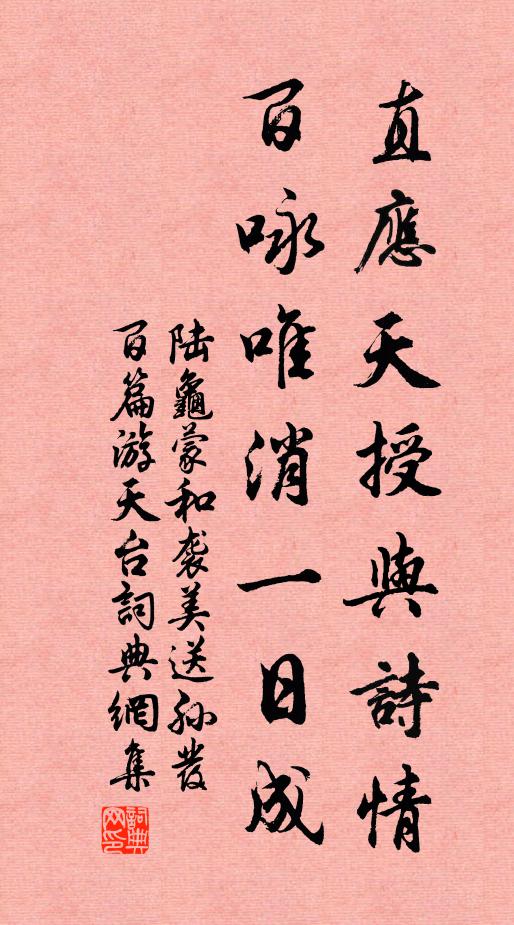 直應天授與詩情
百咏唯消一日成
陆龜蒙和袭美送孙發
百篇游天台詞典網集
詞典网印